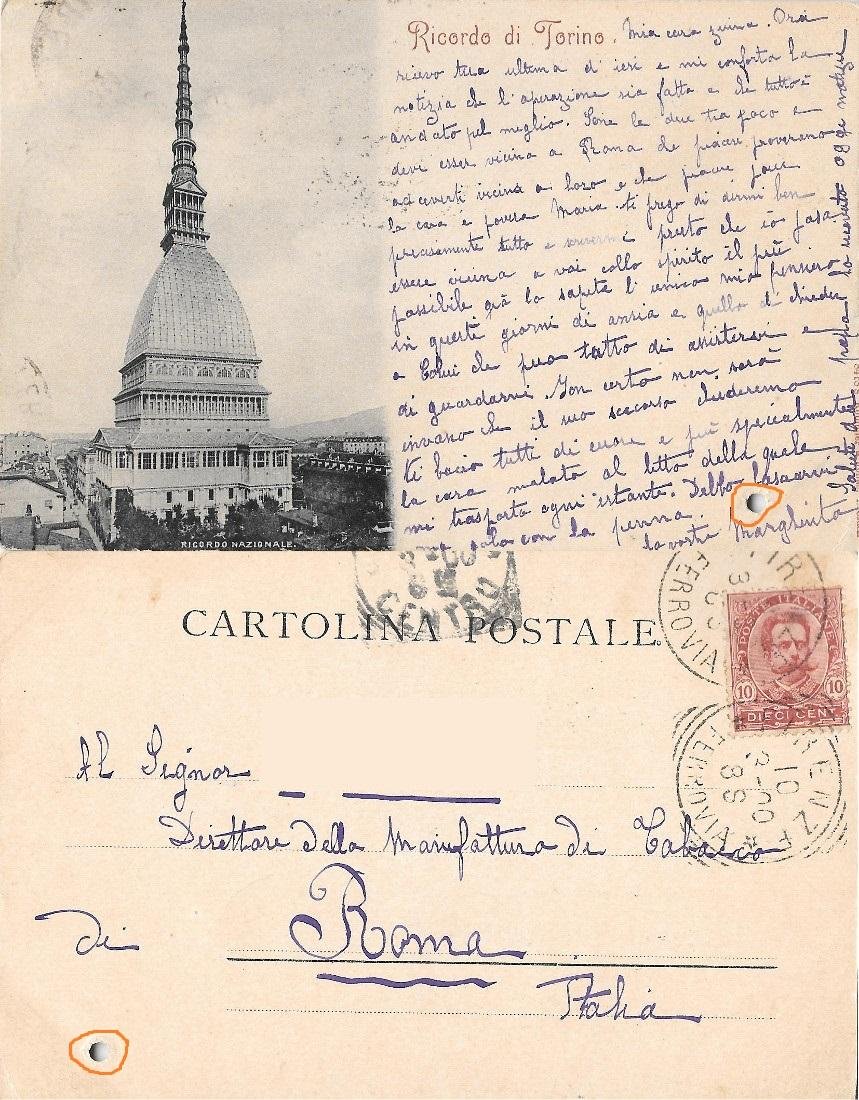 Ricordo di Torino. Mia cara zuina. Ora
ricevo tua ultima d'ieri e mi conforta la
notizia che l'operazione sia fatta e che tutto è
andato pel meglio. le due tra poco e
devi esser vicina a Roma che piacere proveranno
ad averti vicina a loro e che piacere pure
la cara e povera Maria. ti prego di dirmi ben
precisamente tutto e scrivermi presto che io possa
essere vicina a voi collo spirito il più
possibile già lo sapete l'unico mio pensiero
in questi giorni di ansia e quello di chieder
a Colui che può tutto di assistervi e
di guardarvi. Son certa non sarà
invano che il suo soccorso chiederemo
ti bacio tutti di cuore e più specialmente
la cara malata al letto della quale
mi trasporto ogni istante. Debbo lasciarvi
solo con la penna. la vostra Margherita
Saluti da papà ho ricevuto oggi notizie
RICORDO NAZIONALE.
CENTRO
CARTOLINA POSTALE.
FERROVIA
POSTE ITALIANE
10 10
DIECI CENT
FIRENZE
10
3-00
8S
FERROVIA
Al Signor
Direttore della Manifattura dei Tabacco
di Roma
Italia